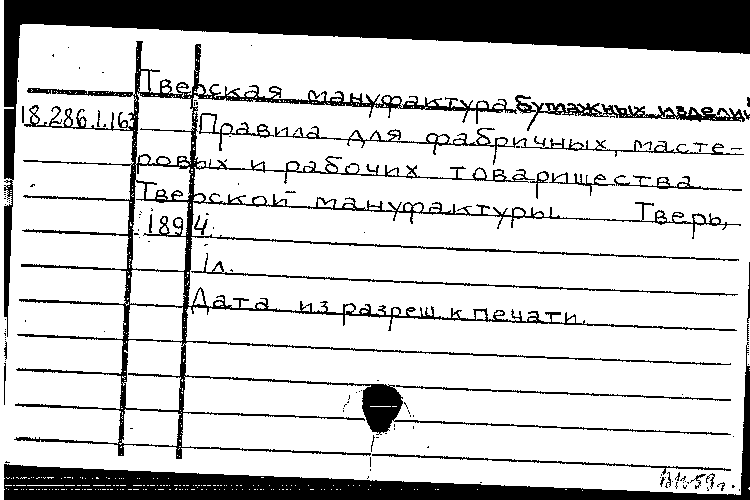 Тверская мануфактура бумажных изделий
18.286.1.163
Правила для фабричных, масте-
ровых и рабочих товарищества
Тверской мануфактуры. Тверь,
1894.
1л.
Дата из разреш. к печати.